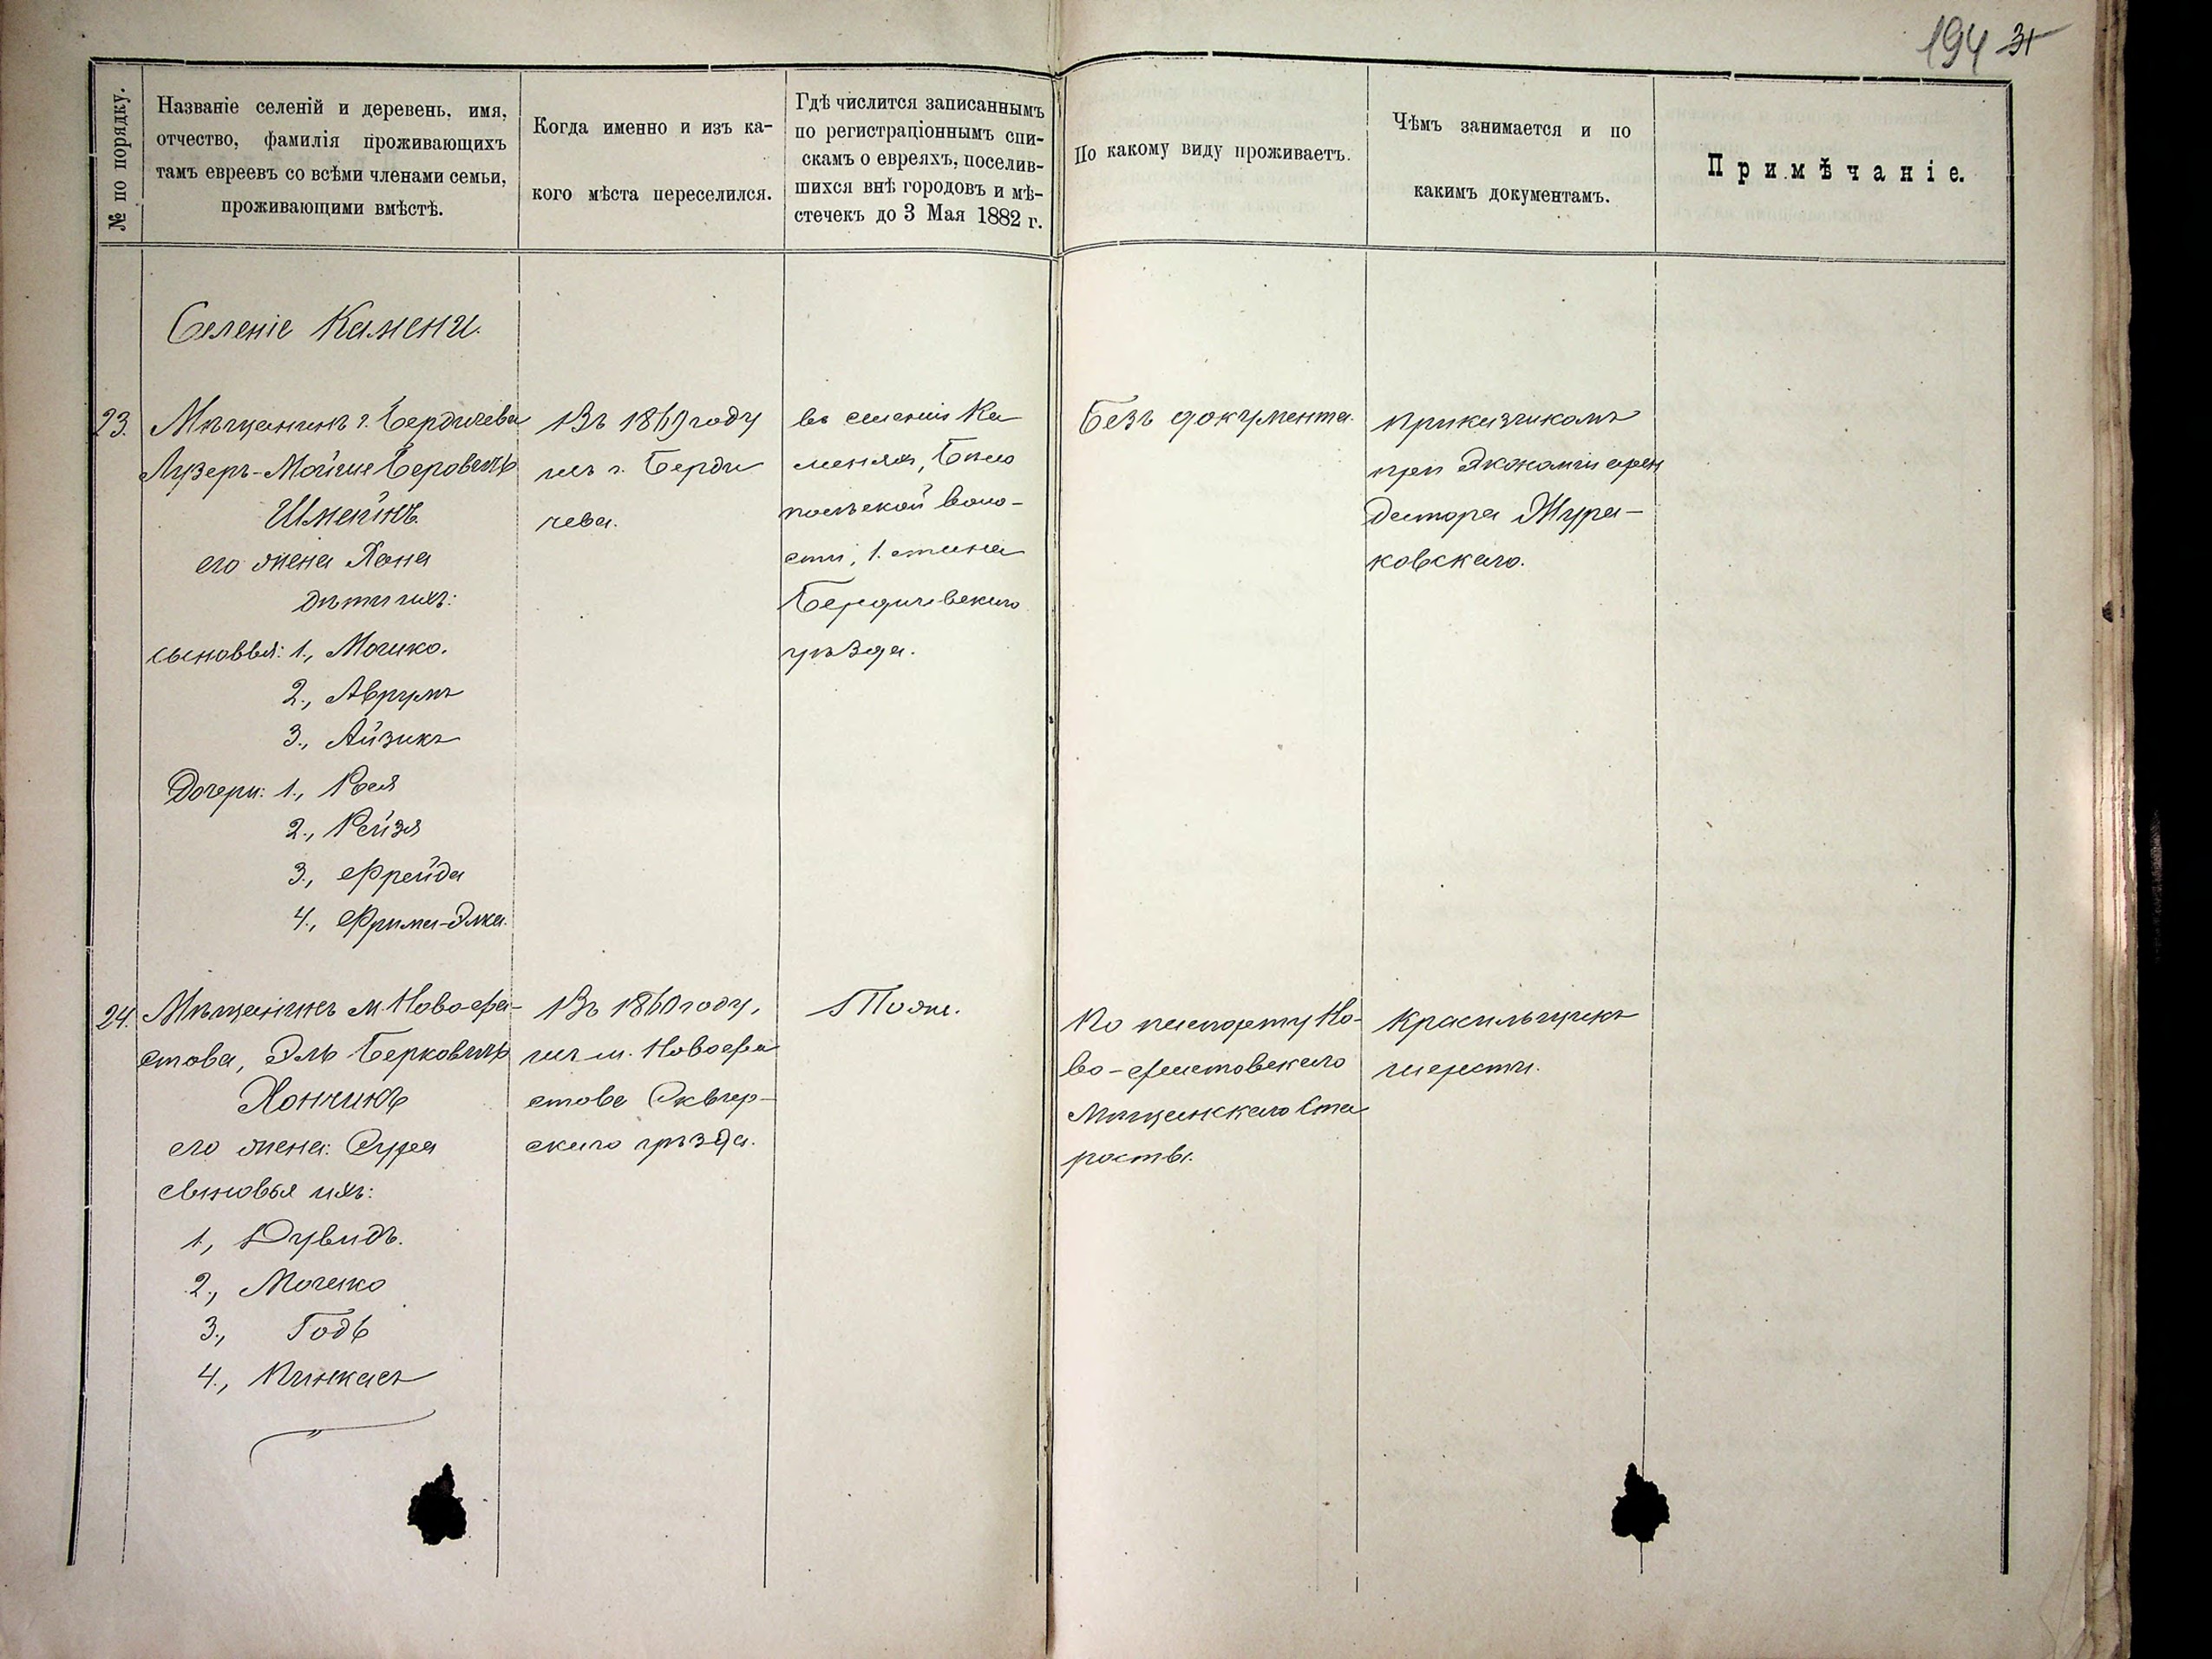 194 31
№ по порядку.
Названіе селеній и деревень, имя,
отчество, фамилія проживающихъ
тамъ евреевъ со всѣми членами семьи,
проживающими вмѣстѣ.
Когда именно и изъ ка-
кого мѣста переселился.
Гдѣ числится записаннымъ
по регистраціоннымъ спи-
скамъ о евреяхъ, поселив-
шихся внѣ городовъ и мѣ-
стечекъ до 3 Мая 1882 г.
По какому виду проживаетъ.
Чѣмъ занимается и по
какимъ документамъ.
Примѣчаніе.
Селеніе Камени.
23.
Мѣщанинъ г. Бердичева
Лузеръ-Мойше Беровичъ
Шмейнъ
его жена Хана
дѣти ихъ:
сыновья: 1., Мошко.
2., Аврумъ
3., Айзикъ
Дочери: 1., Рося
2., Рейзя
3., Фрейда
4., Фрима-Элка.
Въ 1869 году
изъ г. Берди
чева.
въ селеніи Ка
меняхъ, Било
польской воло-
сти, 1. стана
Бердичевскаго
уѣзда.
Безъ документа.
приказчикомъ
при Экономіи арен
датора Жура-
ковскаго.
24.
Мѣщанинъ м. Ново-фа-
стова, Эль Берковичъ
Хончикъ
его жена: Сура
сыновья ихъ:
1., Дувидъ.
2., Мошко
3., Годъ
4., Пинкасъ
Въ 1860 году,
изъ м. Новофа
стова Сквир-
скаго уѣзда.
Тоже.
По паспорту Но-
во-фастовскаго
Мѣщанскаго Ста
росты.
Красильщикъ
шерсти.